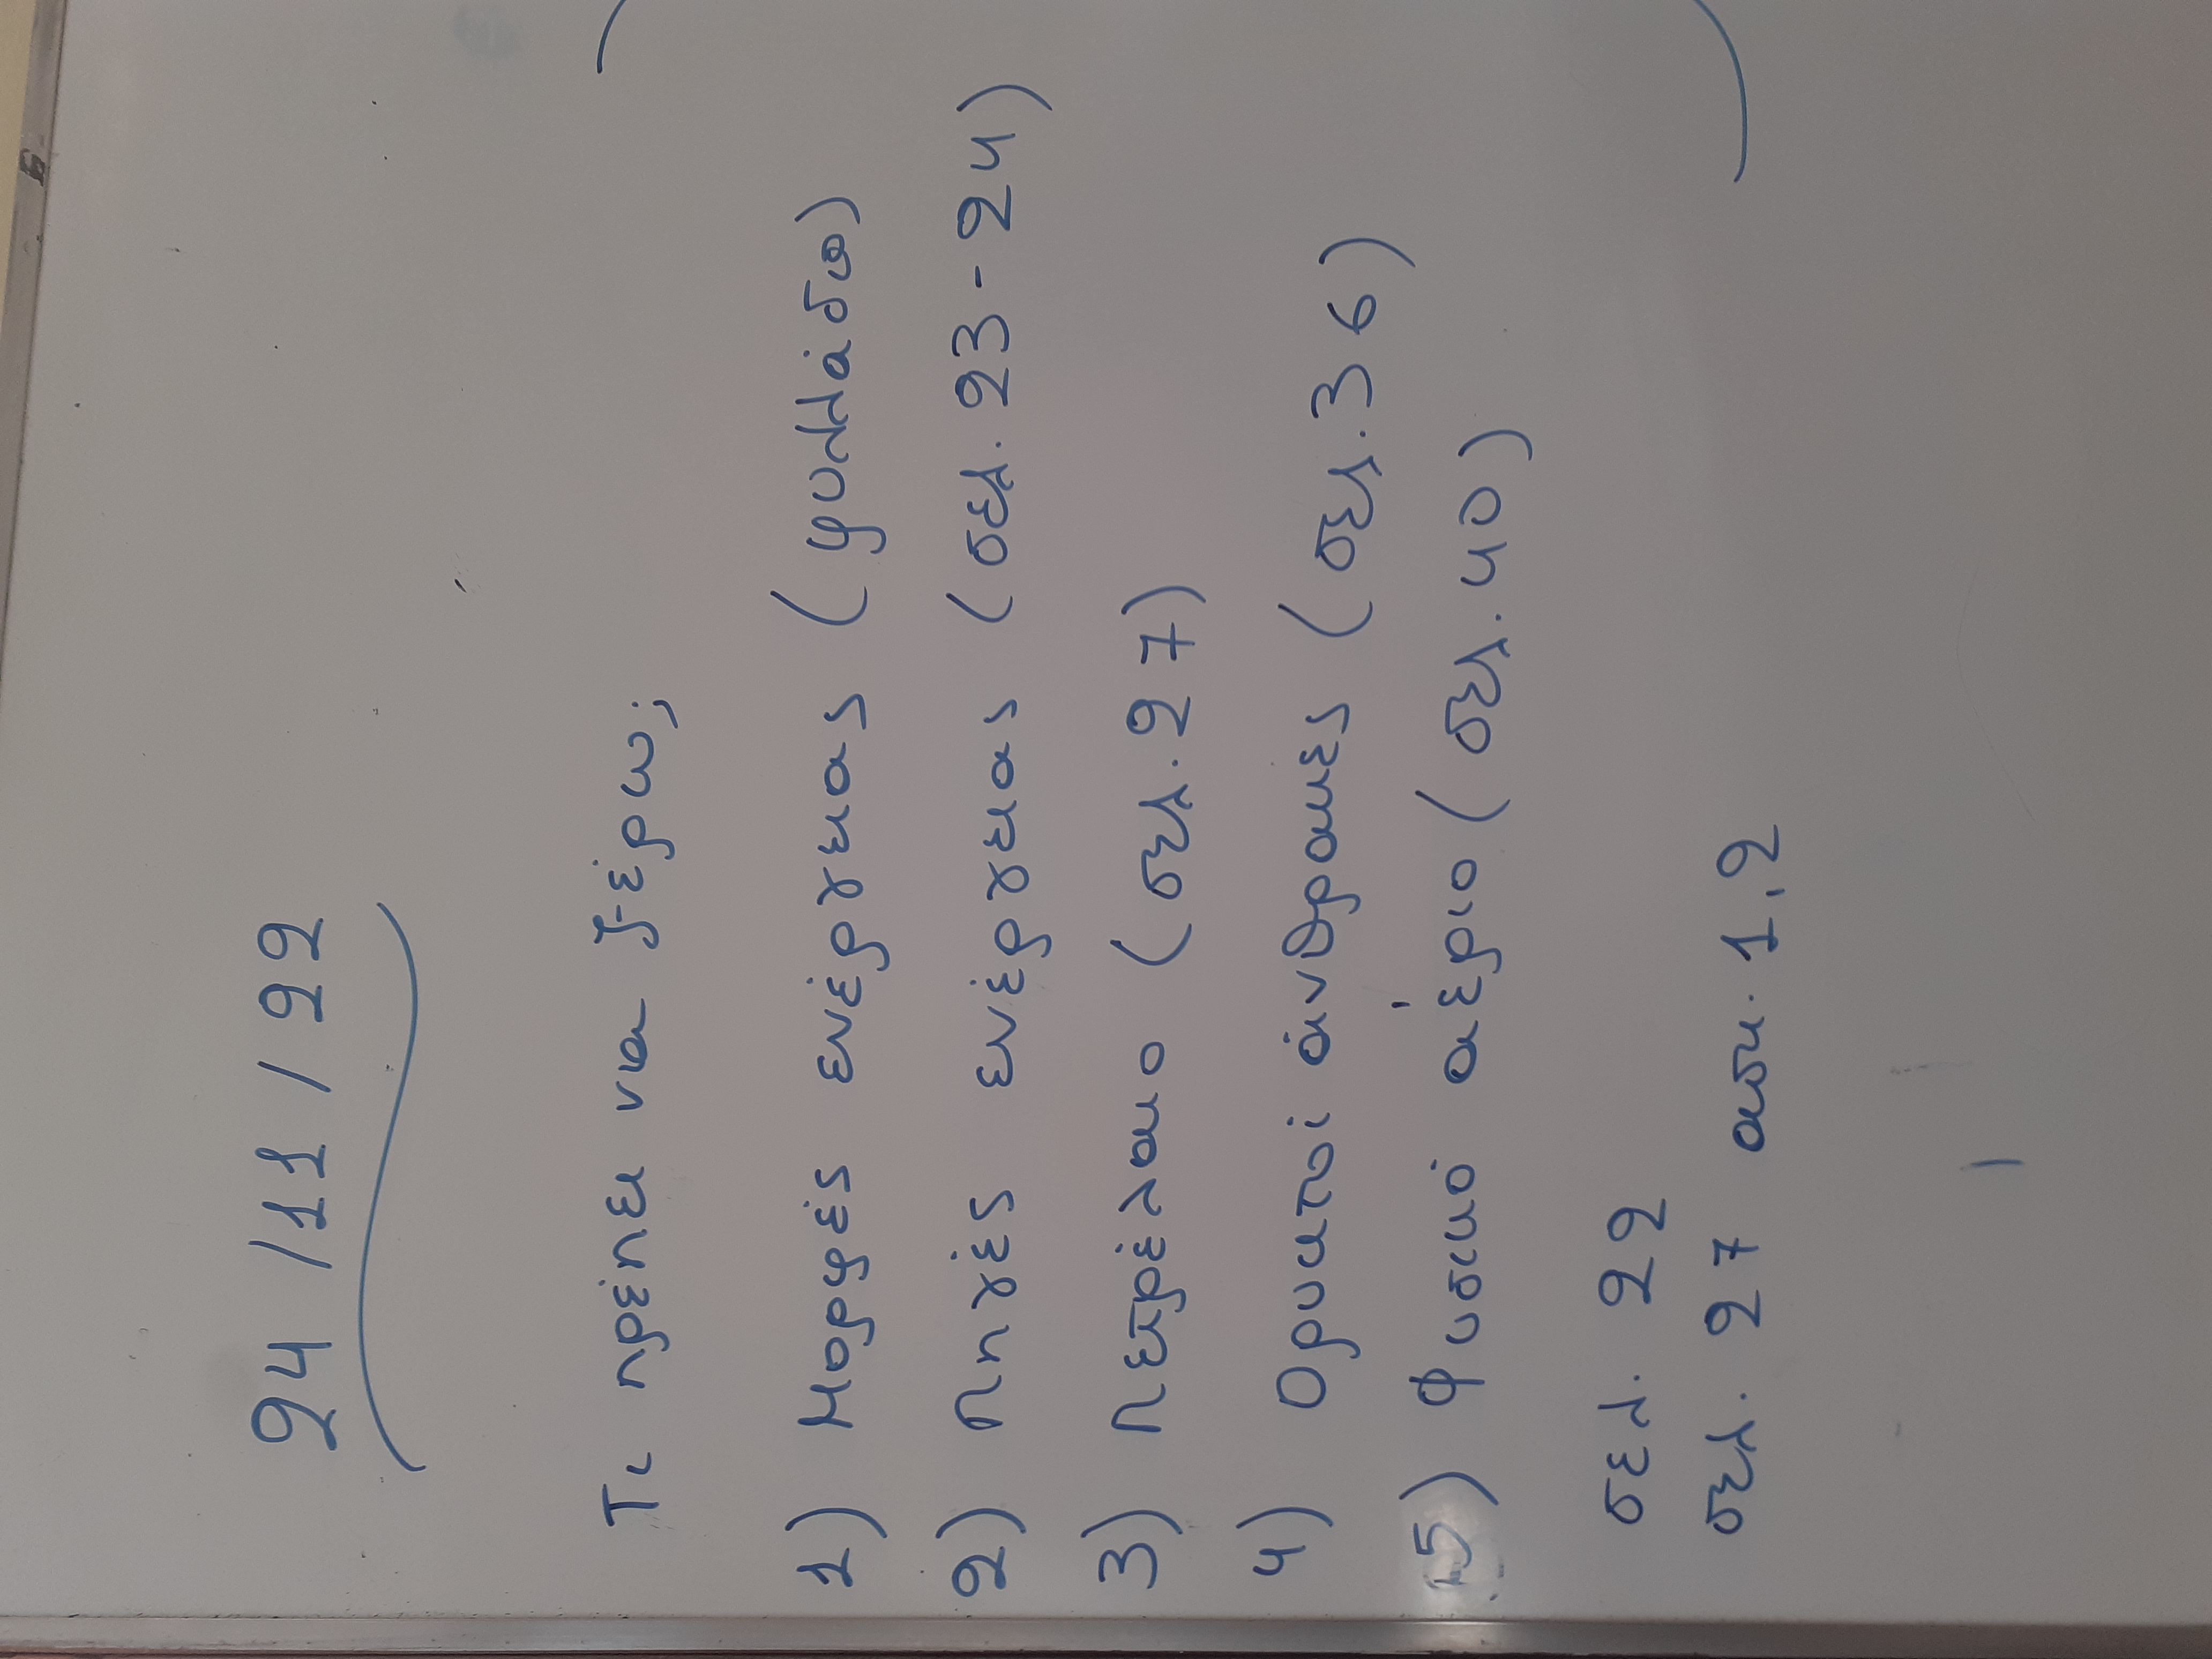 24/11/22
Τι πρέπει να ξέρω;
1) Μορφές ενέργειας (φυλλάδιο)
2) Πηγές ενέργειας (σελ. 23-24)
3) Πετρέλαιο (σελ. 27)
4) Ορυκτοί άνθρακες (σελ. 36)
5) Φυσικό αέριο (σελ. 40)
σελ. 22
σελ. 27 ασκ. 1,2